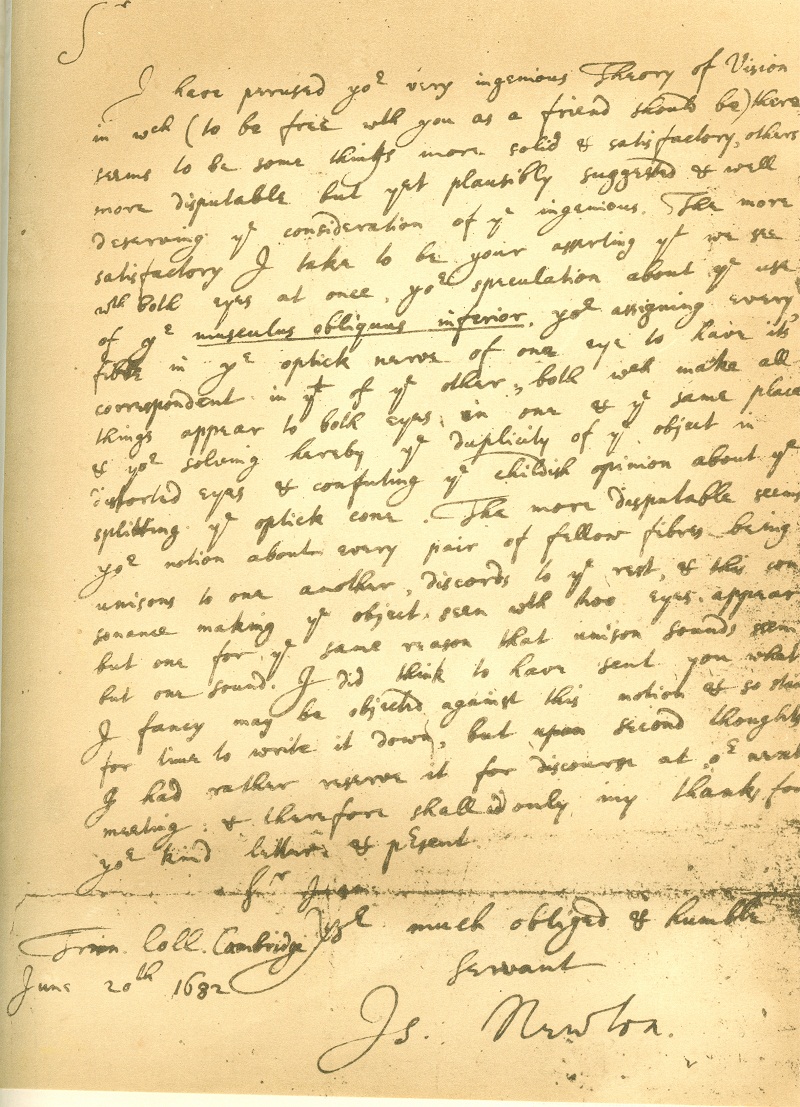 Sr
I have perused yor very ingenious Theory of Vision
in wch (to be free wth you as a friend should be) there
seems to be some things more solid & satisfactory, others
more disputable but yet plausibly suggested & well
deserving ye consideration of ye ingenious. The more
satisfactory I take to be your asserting yt we see
wth both eyes at once, yor speculation about ye use
of ye musculus obliquus inferior, yor assigning every
fibre in ye optick nerve of one eye to have its
correspondent in yt of ye other, both wch make all
things appear to both eyes in one & ye same place
& yor solving hereby ye duplicity of ye object in
distorted eyes & confuting ye childish opinion about ye
splitting ye optick cone. The more disputable seems
yor notion about every pair of fellow fibres being
unisons to one another, discords to ye rest, & this con
sonance making ye object seen wth two eyes appear
but one for ye same reason that unison sounds seem
but one sound. I did think to have sent you what
I fancy may be objected against this notion & so
for time to write it down, but upon second thoughts
I had rather reserve it for discourse at or next
meeting: & therefore shall add only my thanks for
yor kind letter & present.
Sr
Yor much obliged & humble
Servant
Trin. Coll. Cambridge
June 20th 1682
Is. Newton.